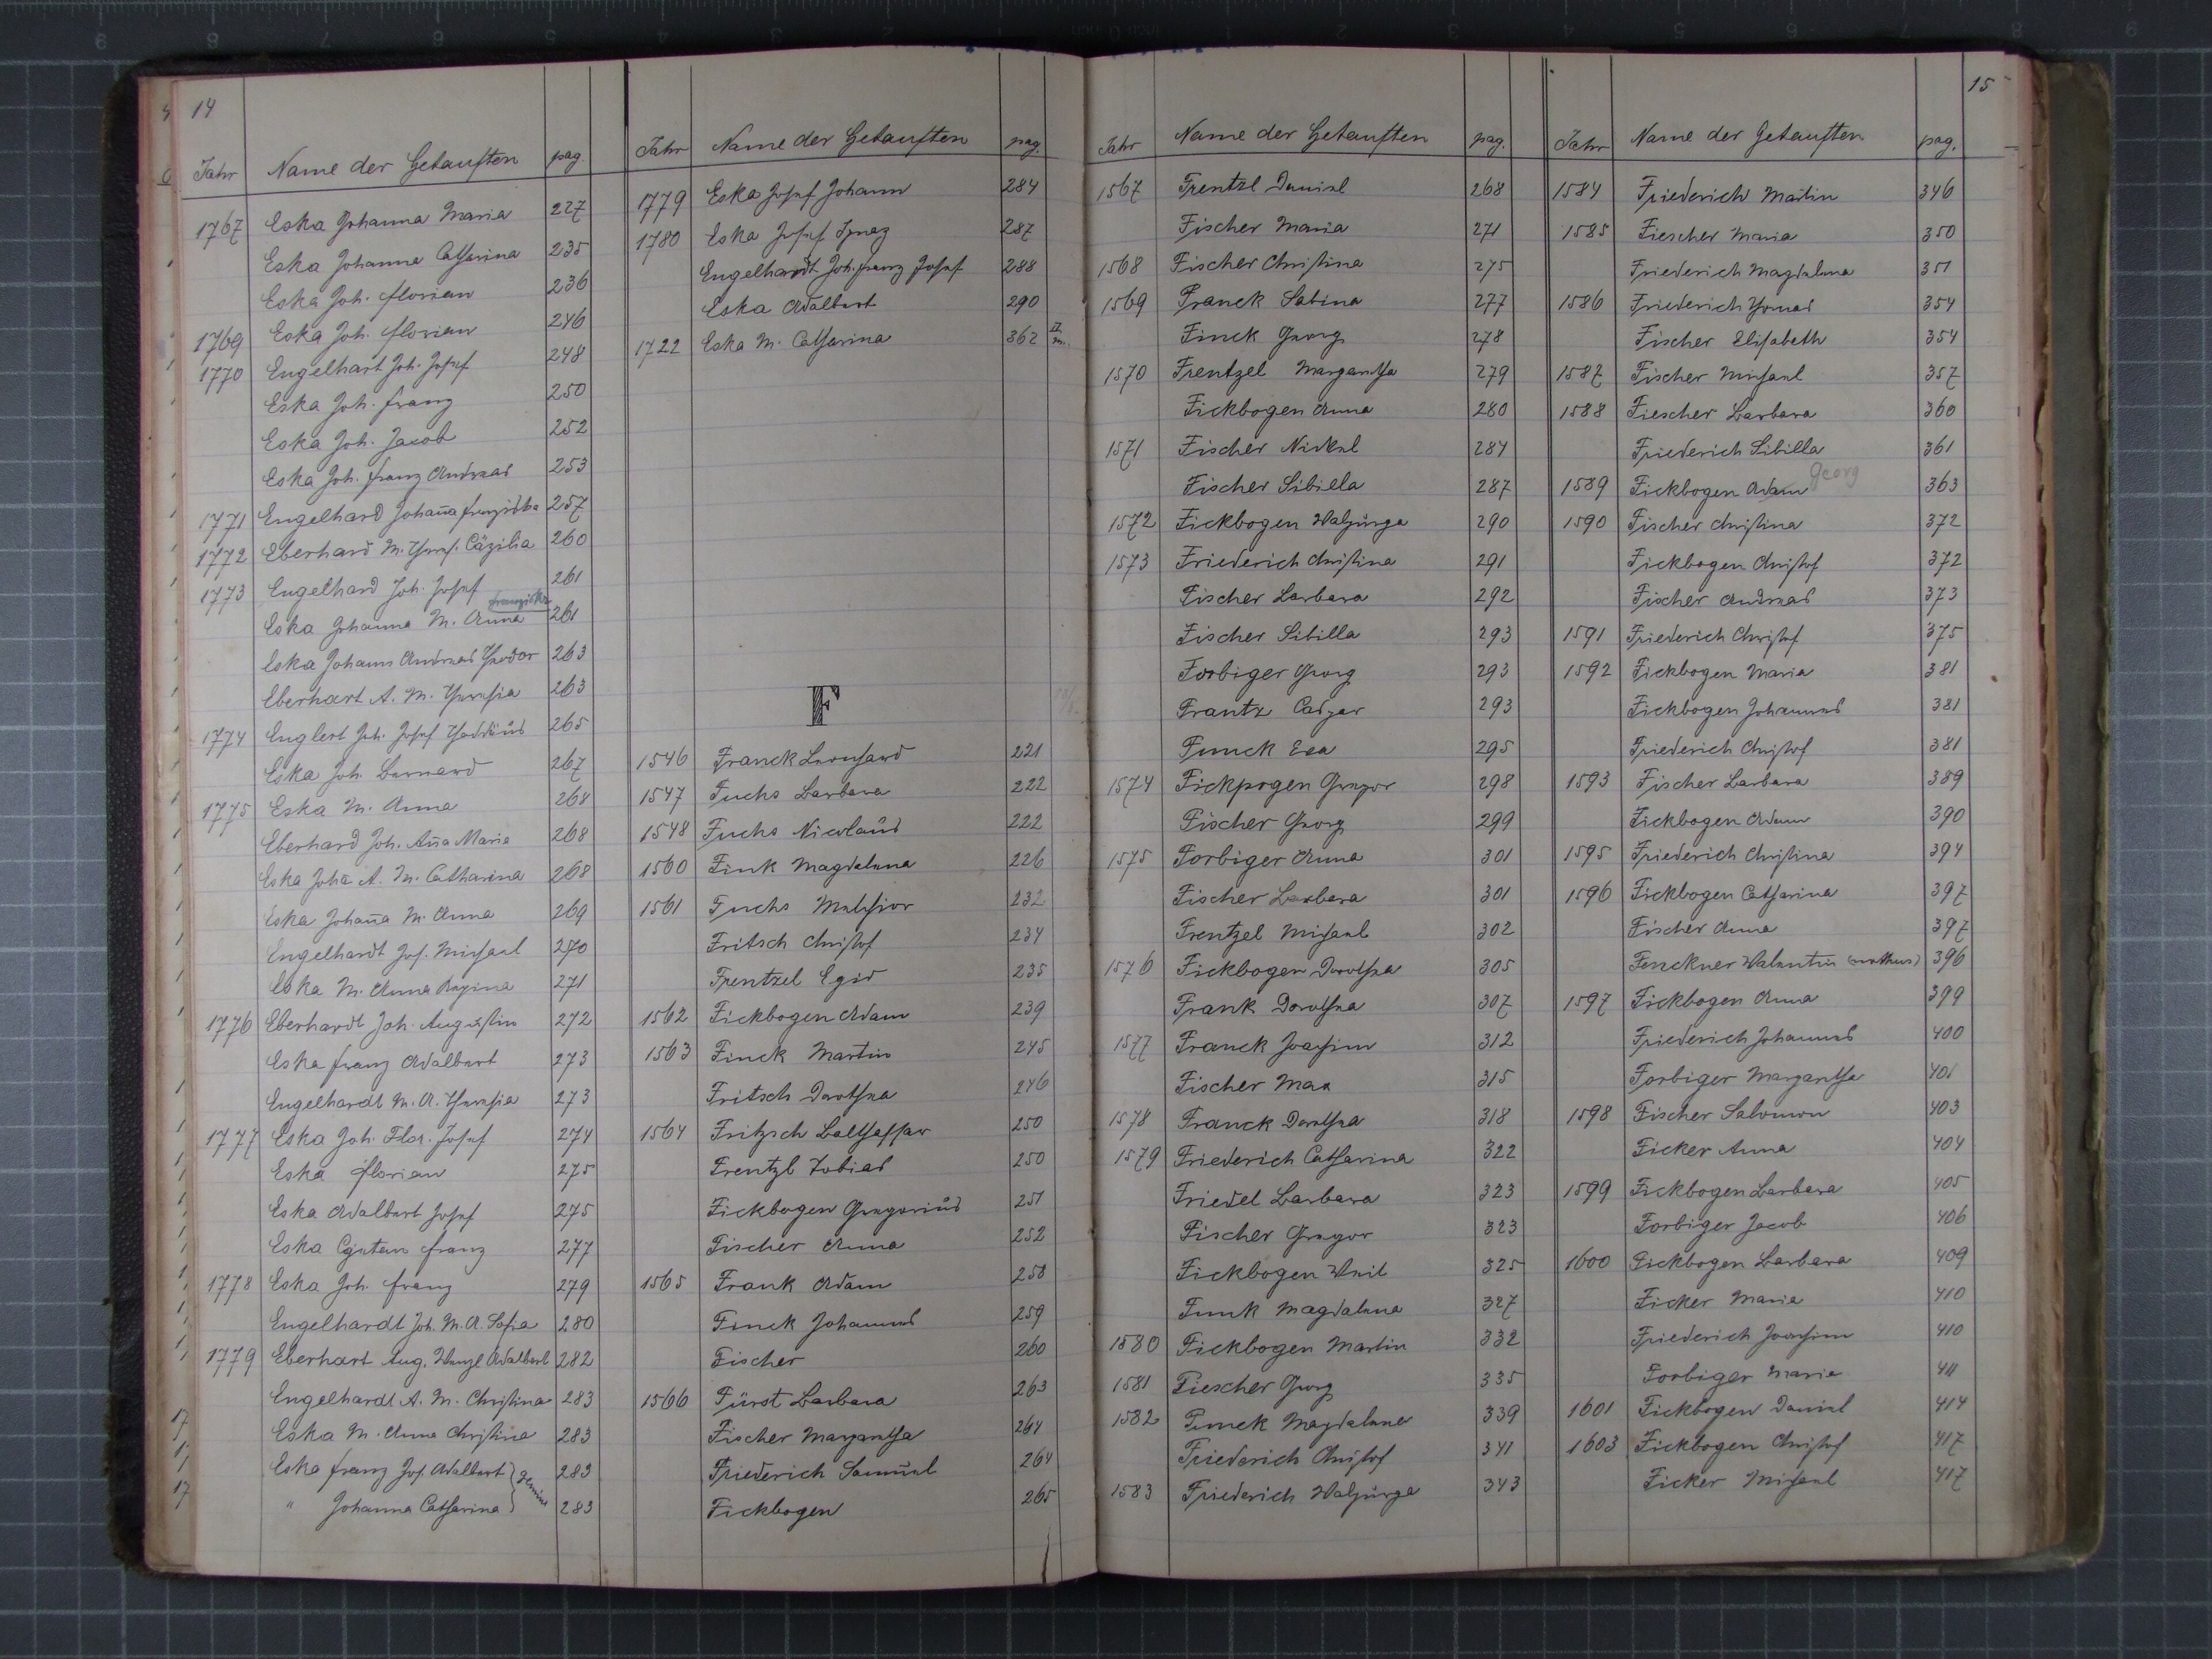 14
Jahr Name der Getauften pag.
1767 Eska Johanna Maria 227
Eska Johanna Catharina 235
Eska Joh. Florian 236
1769 Eska Joh. Florian 246
1770 Engelhart Joh. Josef 248
Eska Joh. Franz 250
Eska Joh. Jacob 252
Eska Joh. Franz Andreas 253
1771 Engelhard Johan̄a Franziska 257
1772 Eberhard M. Theres. Cäzilia 260
1773 Engelhard Joh. Josef 261
franziska
Eska Johanna M. Anna 261
Eska Johann Andreas Theodor 263
Eberhart A. M. Theresia 263
1774 Englert Joh. Josef Thaddäus 265
Eska Joh. Bernard 267
1775 Eska M. Anna 268
Eberhard Joh. An̄a Maria 268
Eska Johā A. M. Catharina 268
Eska Johan̄a M. Anna 269
Engelhardt Jos. Michael 270
Eska M. Anna Regina 271
1776 Eberhardt Joh. Augustin 272
Eska Franz Adalbert 273
Engelhardt M. A. Theresia 273
1777 Eska Joh. Flor. Josef 274
Eska Florian 275
Eska Adalbert Josef 275
Eska Cajetan Franz 277
1778 Eska Joh. Franz 279
Engelhardt Joh. M. A. Sofia 280
1779 Eberhart Aug. Wenzl Adalbert 282
Engelhardt A. M. Christina 283
Eska M. Anna Christina 283
Eska Franz Jos. Adalbert 283
" Johanna Catharina 283
Jahr Name der Getauften pag.
1779 Eska Josef Johann 284
1780 Eska Josef Ignaz 287
Engelhardt Joh. Franz Josef 288
Eska Adalbert 290
1722 Eska M. Catharina 362
F
1546 Franck Leonhard 221
1547 Fuchs Barbara 222
1548 Fuchs Nicolaus 222
1560 Fink Magdalena 226
1561 Fuchs Melchior 232
Fritsch Christof 234
Frentzel Egid 235
1562 Fickbogen Adam 239
1563 Finck Martin 245
Fritsch Dorothea 246
1564 Fritzsch Balthassar 250
Frentzl Tobias 250
Fickbogen Gregorius 251
Fischer Anna 252
1565 Frank Adam 258
Finck Johannes 259
Fischer 260
1566 Fürst Barbara 263
Fischer Margaretha 264
Friederich Samuel 264
Fickbogen 265
15
Jahr Name der Getauften pag.
1567 Frentzl Daniel 268
Fischer Maria 271
1568 Fischer Christina 275
1569 Franck Sabina 277
Finck Georg 278
1570 Frentzel Margaretha 279
Fickbogen Anna 280
1571 Fischer Nickel 284
Fischer Sibilla 287
1572 Fickbogen Walpurga 290
1573 Friederich Christina 291
Fischer Barbara 292
Fischer Sibilla 293
Forbiger Georg 293
Frantz Caspar 293
Funck Eva 295
1574 Fickpogen Gregor 298
Fischer Georg 299
1575 Forbiger Anna 301
Fischer Barbara 301
Frentzel Michael 302
1576 Fickbogen Dorothea 305
Frank Dorothea 307
1577 Franck Joachim 312
Fischer Max 315
1578 Franck Dorothea 318
1579 Friederich Catharina 322
Friedel Barbara 323
Fischer Gregor 323
Fickbogen Veit 325
Funk Magdalena 327
1580 Fickbogen Martin 332
1581 Fiescher Georg 335
1582 Funck Magdalena 339
Friederich Christof 341
1583 Friederich Walpurga 343
Jahr Name der Getauften pag.
1584 Friederich Martin 346
1585 Fiescher Maria 350
Friederich Magdalena 351
1586 Friederich Thomas 354
Fischer Elisabeth 354
1587 Fischer Michael 357
1588 Fiescher Barbara 360
Friederich Sibilla 361
Georg
1589 Fickbogen Adam 363
1590 Fischer Christina 372
Fickbogen Christof 372
Fischer Andreas 373
1591 Friederich Christof 375
1592 Fickbogen Maria 381
Fickbogen Johannes 381
Friederich Christof 381
1593 Fischer Barbara 389
Fickbogen Adam 390
1595 Friederich Christina 394
1596 Fickbogen Catharina 397
Fischer Anna 397
Fenckner Valentin (matheus) 396
1597 Fickbogen Anna 399
Friederich Johannes 400
Forbiger Margaretha 401
1598 Fischer Salomon 403
Ficker Anna 404
1599 Fickbogen Barbara 405
Forbiger Jacob 406
1600 Fickbogen Barbara 409
Ficker Maria 410
Friederich Joachim 410
Forbiger Maria 411
1601 Fickbogen Daniel 414
1603 Fickbogen Christof 417
Ficker Michael 417